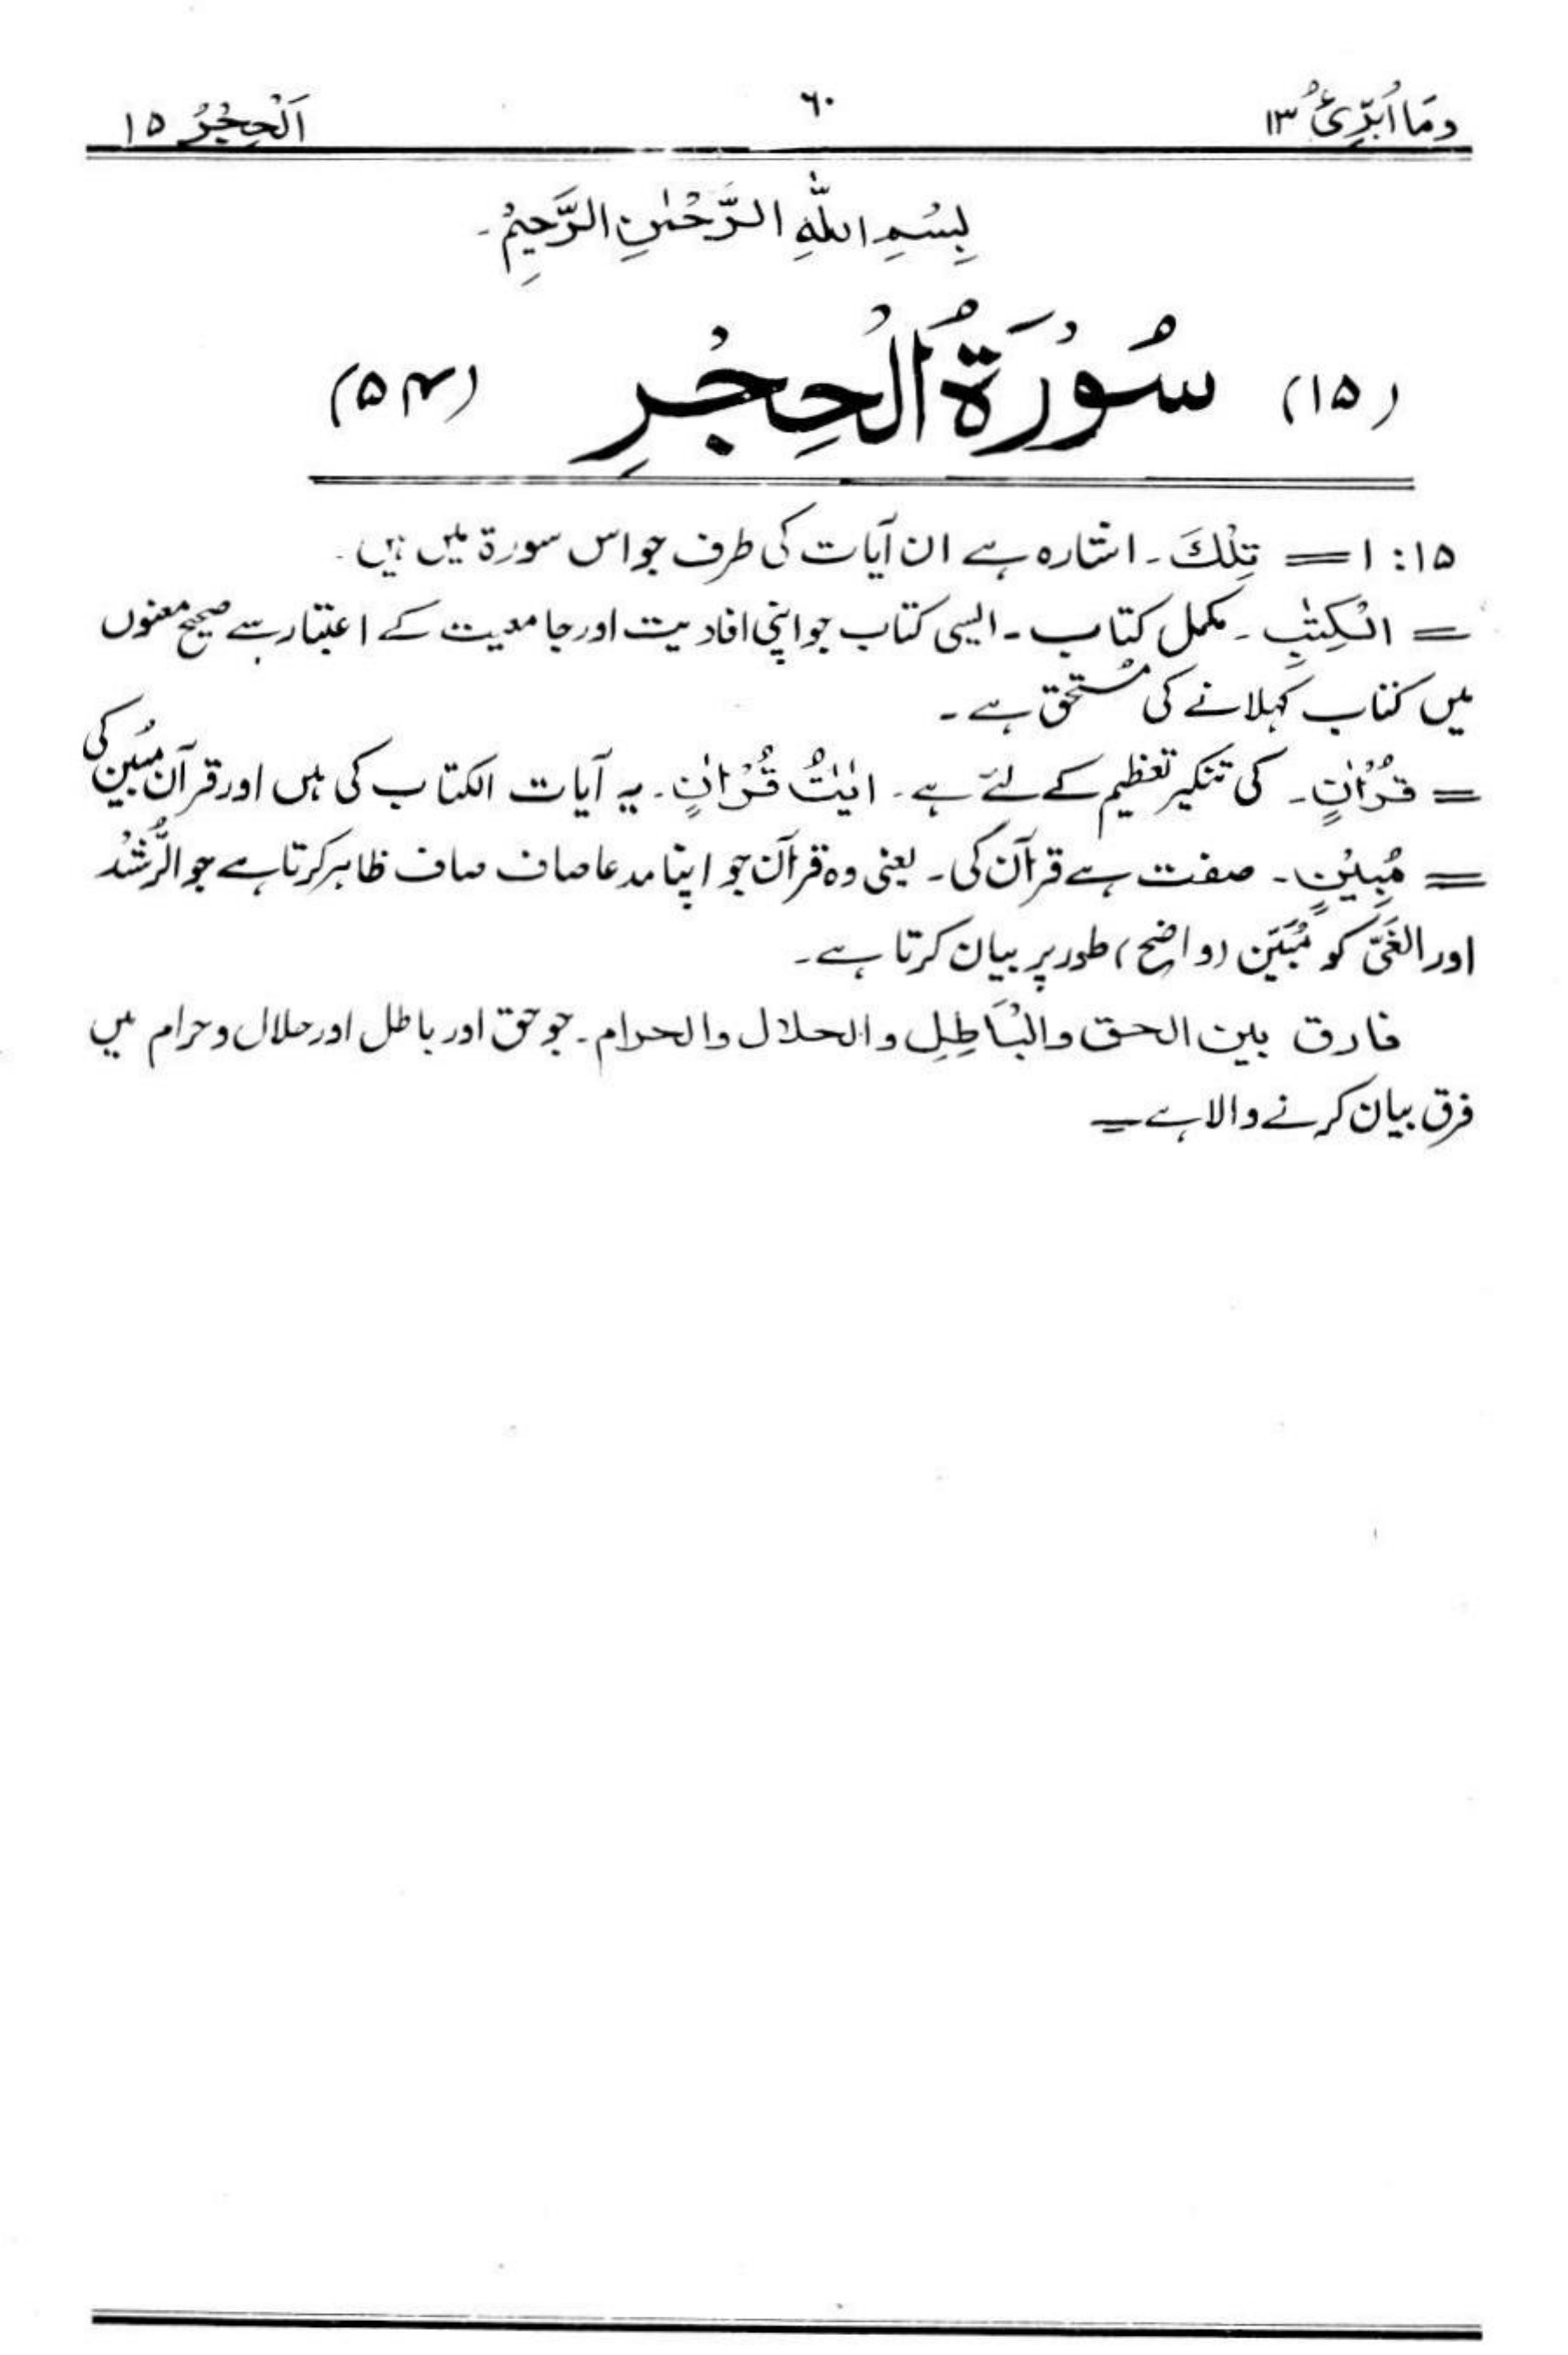 وَمَا اُبَرِّئُ ۱۳
۶۰
اَلْحِجْرُ ۱۵
بِسْمِ اللّٰهِ الرَّحْمٰنِ الرَّحِيْمِ۔
(۱۵) سُوْرَةُ الْحِجْرِ (۵۴)
۱:۱۵ = تِلْكَ ۔ اشارہ ہے ان آیات کی طرف جو اس سورۃ میں ہیں ۔
= الْكِتٰبِ ۔ مکمل کتاب ۔ ایسی کتاب جو اپنی افادیت اور جامعیت کے اعتبار سے صحیح معنوں
میں کتاب کہلانے کی مُستحق ہے ۔
= قُرْاٰنٍ ۔ کی تنکیر تعظیم کے لئے ہے ۔ اٰيٰتُ قُرْاٰنٍ ۔ یہ آیات الکتاب کی ہیں اور قرآن مُبین کی
= مُبِيْنٍ ۔ صفت ہے قرآن کی ۔ یعنی وہ قرآن جو اپنا مدعا صاف صاف ظاہر کرتا ہے جو الرُّشْدُ
اور الْغَیَّ کو مُبَیَّن (واضح) طور پر بیان کرتا ہے ۔
فارق بین الحق والْبَاطِلِ والحلال والحرام ۔ جو حق اور باطل اور حلال و حرام میں
فرق بیان کرنے والا ہے =